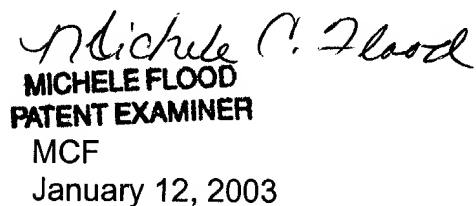 Michele C. Flood
MICHELE FLOOD
PATENT EXAMINER
MCF
January 12, 2003